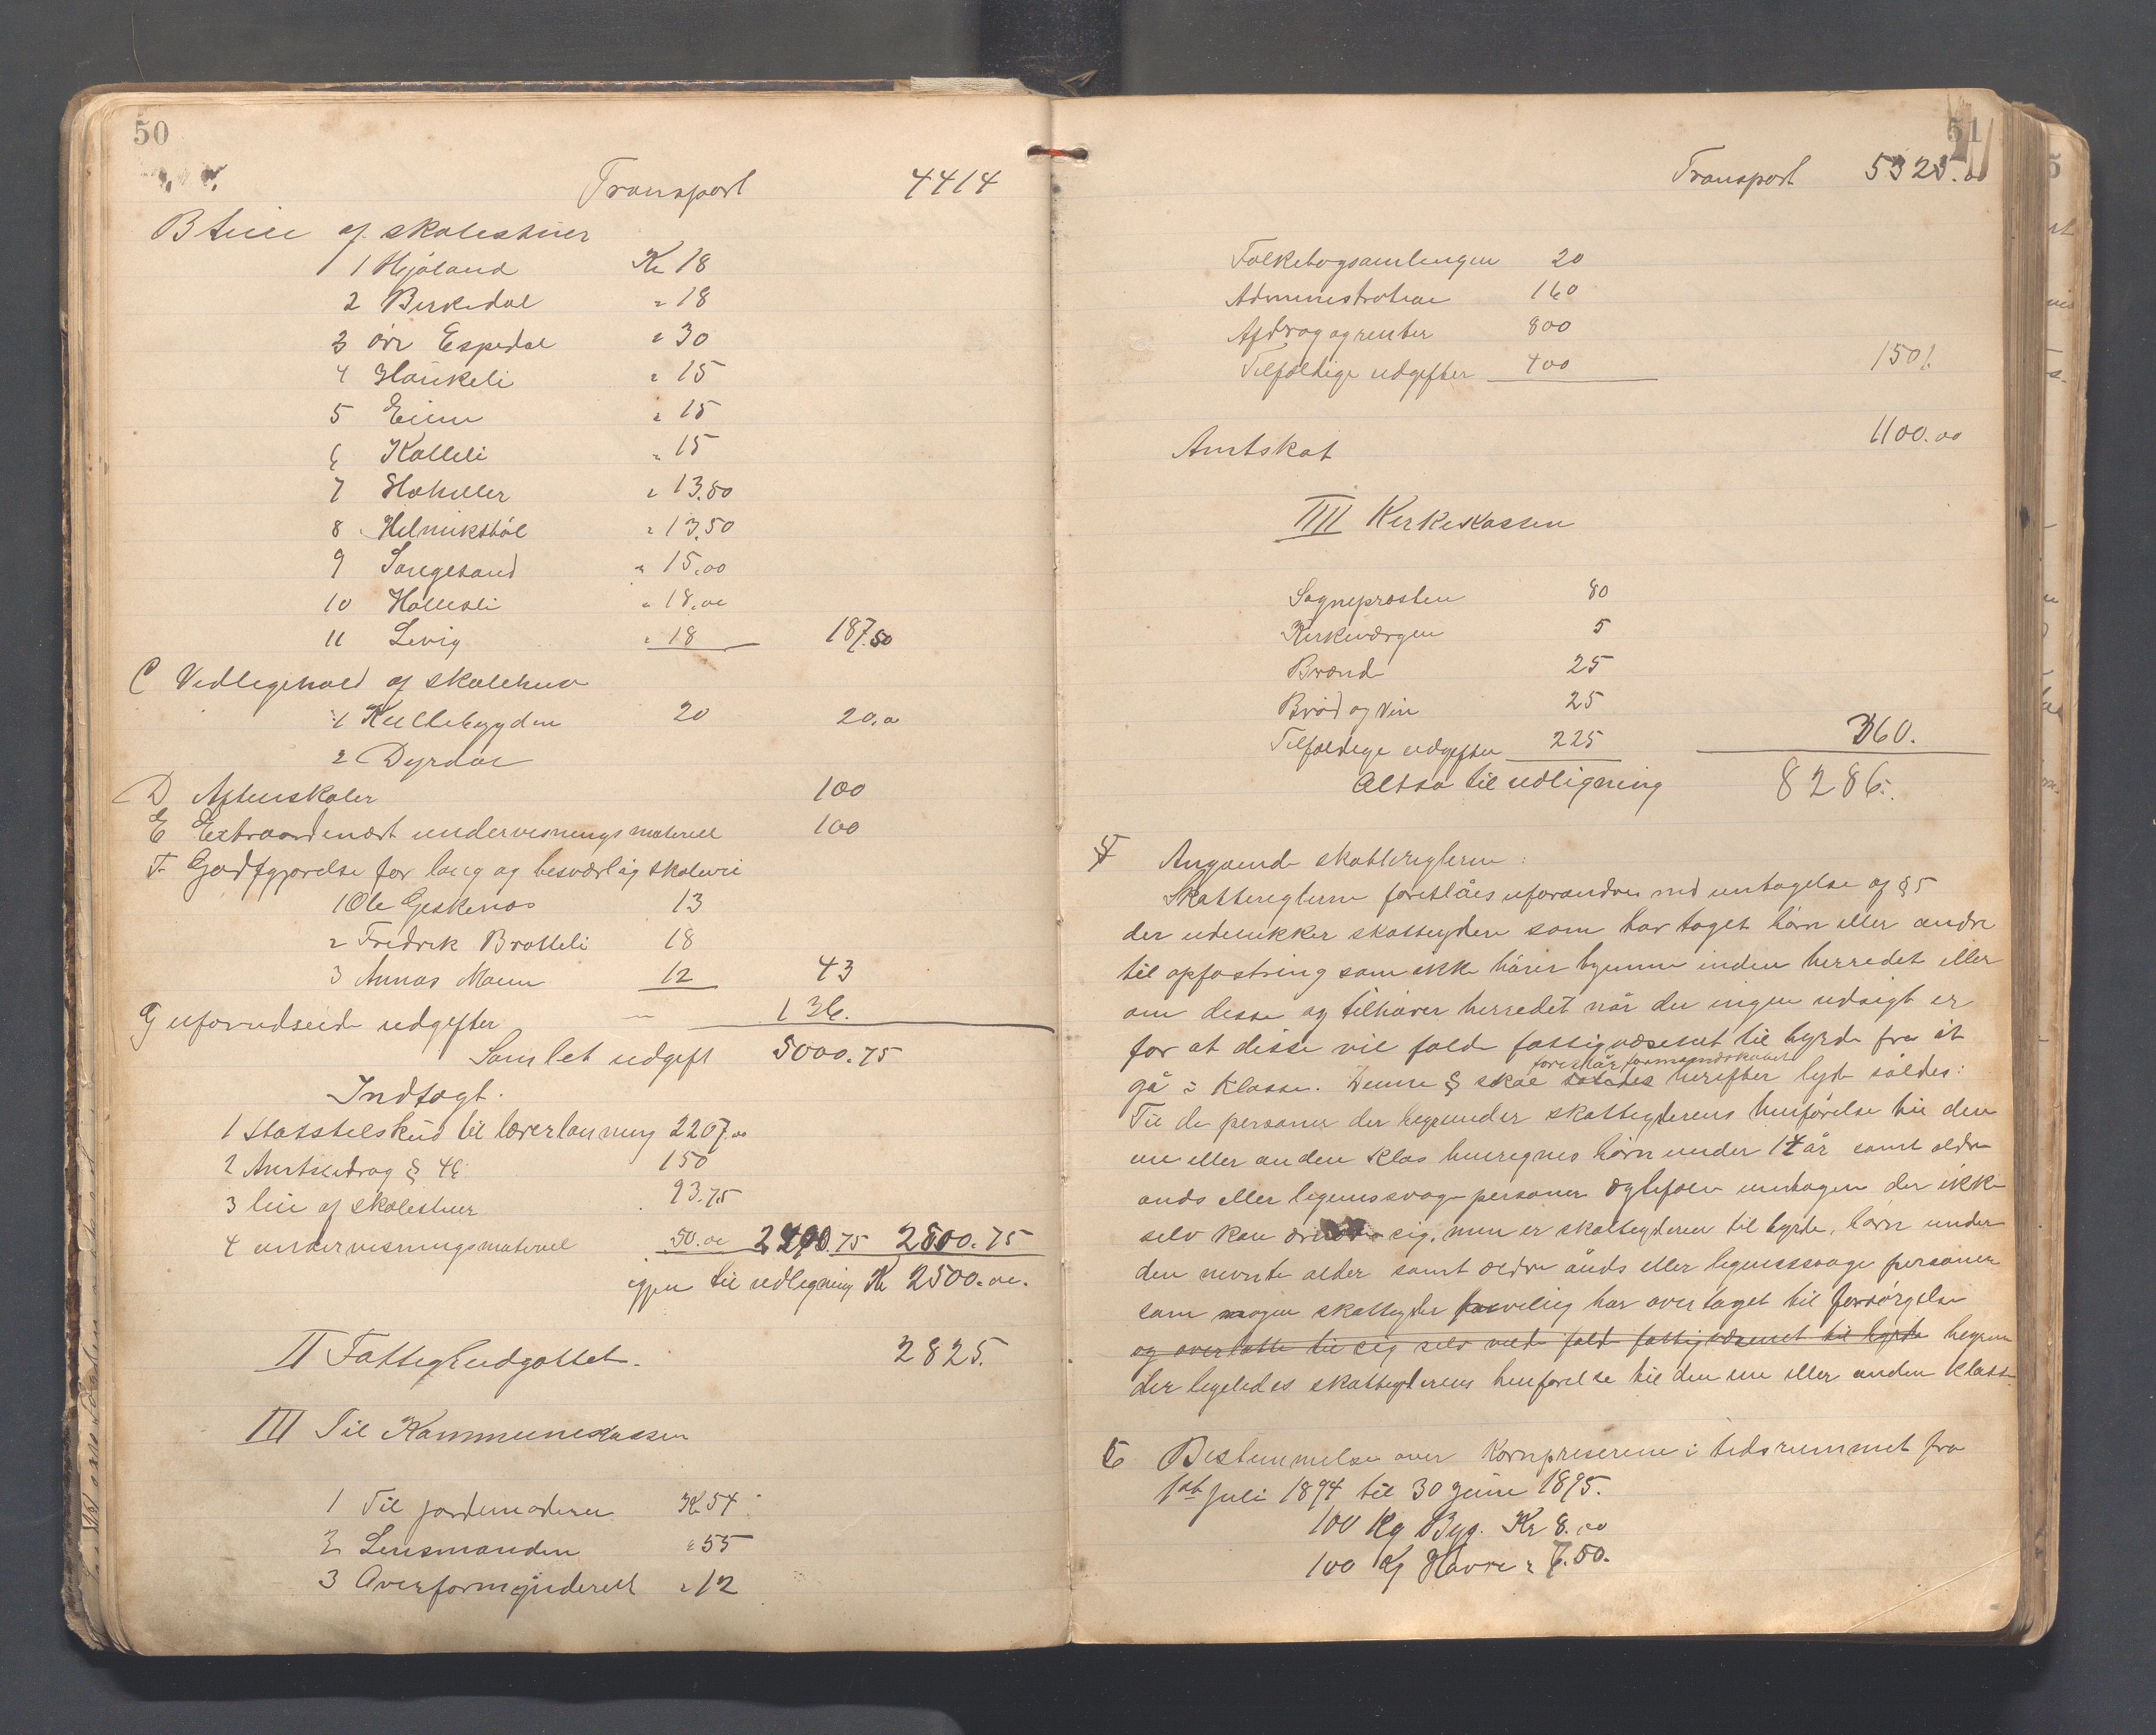 50
Transport 4414
B Leie af skolestuer
1 Hjøland Kr 18
2 Birkedal " 18
3 øvr Espedal " 30
4 Haukeli " 15
5 Eiene " 15
6 Kolleli " 15
7 Haheller " 13.50
8 Helmikstøl " 13.50
9 Songesand " 15.00
10 Hatlesli " 18.00
11 Levig " 18 187.50
C Vedligehold af skolehuse
1 Kullebygden 20 20.00
2 Dyrdal
D Aftenskoler 100
E Extraordinært undervisningsmateriell 100
F Godtgjørelse for lang og besværlig skolevei
1 Ole Geskenos 13
2 Fredrik Bratteli 18
3 Annas Moen 12 43
G uforudseede udgifter — 136.
Samlet udgift 5000.75
Indtægt.
1 Statstilskud til lærerlønning 2207.00
2 Amtsbidrag § 46 150
3 leie af skolestuer 93.75
4 undervisningsmateriel 50.00 2500.75 2500.75
igjen til udligning Kr 2500.00.
II Fattigbudgettet. 2825.
III Til Kommunekassen
1 Til jordemoderen Kr 54
2 Lensmanden " 55
3 Overformynderiet " 12
51
Transport 5325.00
Folkebogsamlingen 20
Administration 160
Afdrag og renter 800
Tilfældige udgifter 400 1501.
Amtskat 1100.00
IIII Kirkekassen
Sogneprosten 80
Kirkeværgen 5
Brænd 25
Brød og Vin 25
Tilfældige udgifter 225 360.
Altsa til udligning 8286.
Angaaende skattereglerne:
Skattereglerne foreslåes uforandres med undtagelse af § 5
der udelukker skatteydere som har taget børn eller andre
til opfostring som ikke hører hjemme inden herredet eller
om disse og tilhører herredet når der ingen udsigt er
for at disse vil falde fattigvæsenet til byrde fra at
foreslår formandskabet
gå i klasse. Denne § skal herefter lyde således:
Til de personer der begrunder skatteyderens henførelse til den
ene eller anden Klas henregnes børn under 14 år samt ældre
ands eller legemssvage personer ægtefolk undtagen der ikke
selv kan ernære sig, men er skatteyderen til byrde, børn under
den nevnte alder samt ældre ånds eller legemssvage personer
som nogen skatteyder frivillig har overtaget til forsørgelse
og overlatte til sig selv vilde falde fattigvæsenet til byrde begrun
der ligeledes skatteyderens henførelse til den ene eller anden Klasse
6 Bestemmelse over Kornpriserne i tidsrummet fra
1ste Juli 1894 til 30 Juni 1895.
100 Kg Byg. Kr 8.00
100 Kg Havre " 7.50.